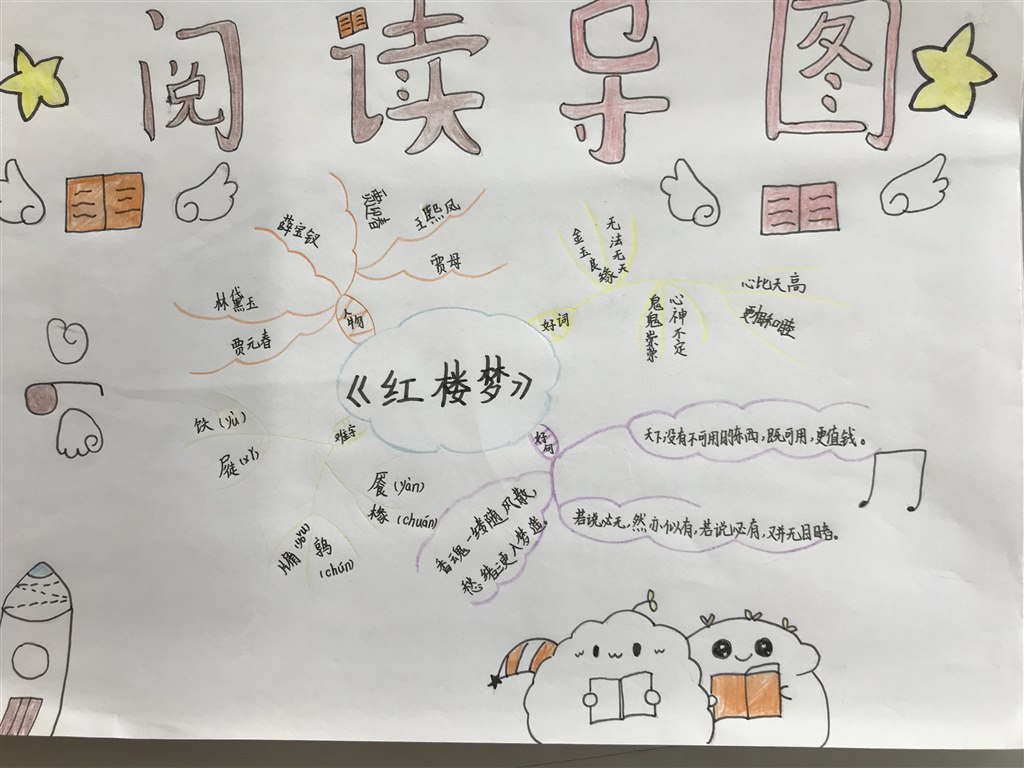 阅读导图
《红楼梦》
人物
薛宝钗
王熙凤
贾母
林黛玉
贾元春
好词
金玉良缘
无法无天
鬼鬼祟祟
心神不定
心比天高
难字
饫(yù)
屣(xǐ)
餍(yàn)
椽(chuán)
牖(yǒu)
鹑(chún)
好句
天下没有不可用的东西,既可用,更值钱。
若说必无,然亦似有,若说必有,又并无目睹。
香魂一缕随风散,
愁绪三更入梦遥。